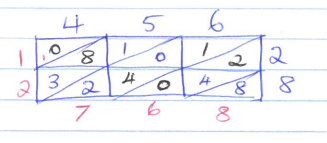 4 5 6
1 0 1 8 1 0 1 2 2
2 3 2 4 0 4 8 8
7 6 8